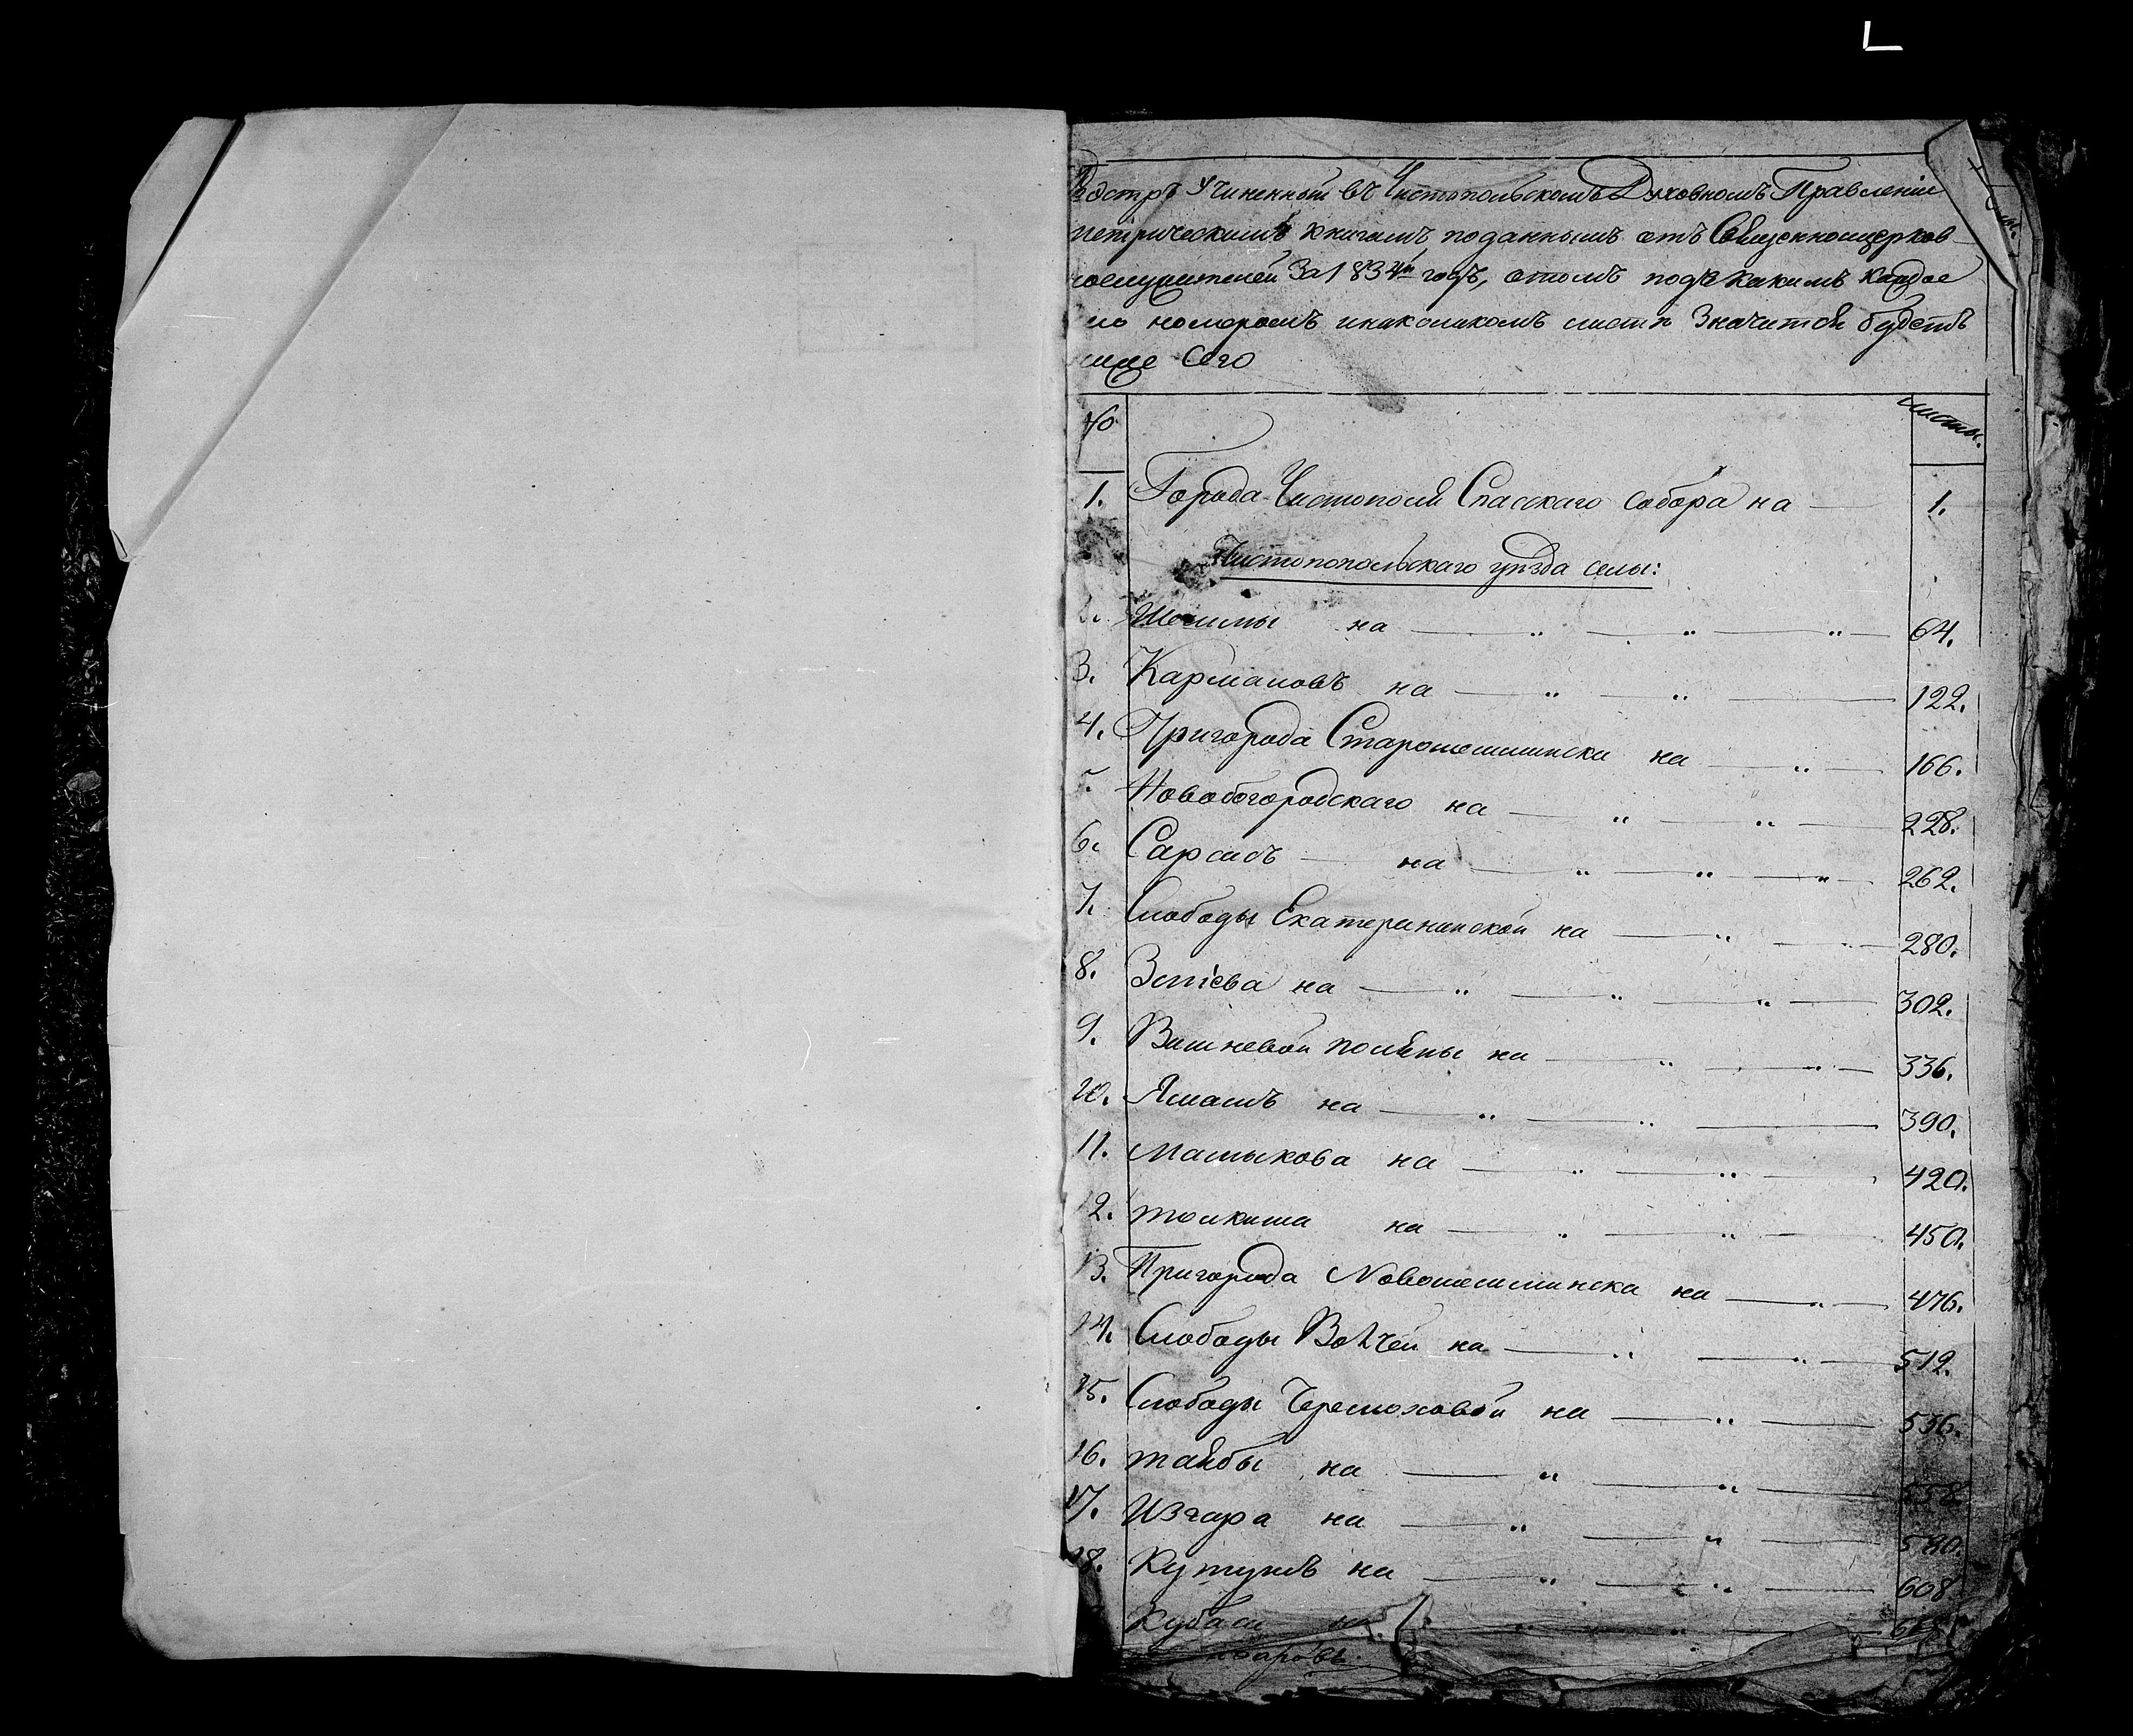 Учиненный въ Чистопольскомъ Духовномъ Правленіи
метрическимъ книгамъ, поданнымъ отъ Священноцерков-
нослужителей за 1834й годъ, о томъ подъ какимъ каждое
номеромъ и на коликомъ листѣ значится будетъ
ниже сего
№ листы.
1. Города Чистополя Спасскаго собора на 1.
Чистопольскаго уѣзда селы:
2. на 64.
3. на 122.
4. Пригорода Старошешминска на 166.
Новобогородскаго на 228.
6. на 262.
7. Слободы Екатерининской на 280.
8. на 302.
9. Вишневой поляны на 336.
10. на 390.
11. Мамыкова на 420.
12. толкиша на 450.
13. Пригорода Новошешминска на 476.
14. Слободы Волчей на 512.
15. Слободы Черемховой на 536.
16. таябы на 558.
17. Изгара на 580.
18. на 608.
Кубасъ